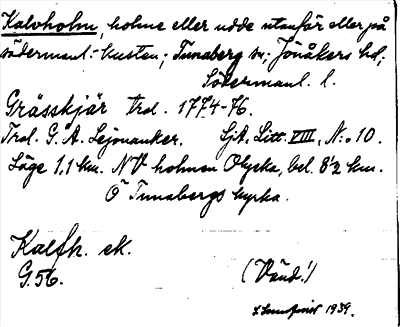 Kalvholm, holme eller udde utanför eller på
södermanl.-kusten; Tunaberg sn; Jönåkers hd;
Södermanl. l.
Grässkjär Trol. 1774-76.
Trol. G. A. Lejonanker. LjA, Litt. VIII, N:o 10.
Läge 1,1 km. NV holmen Olycka, bel. 8½ km.
Ö Tunabergs kyrka.
Kalfh. ek.
G. 56.
(Vänd!)
1939.